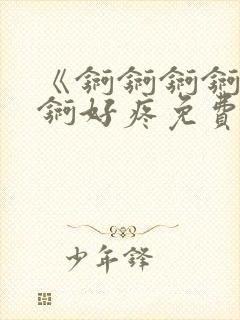 《锕锕锕锕
锕好疼免费
少年锋